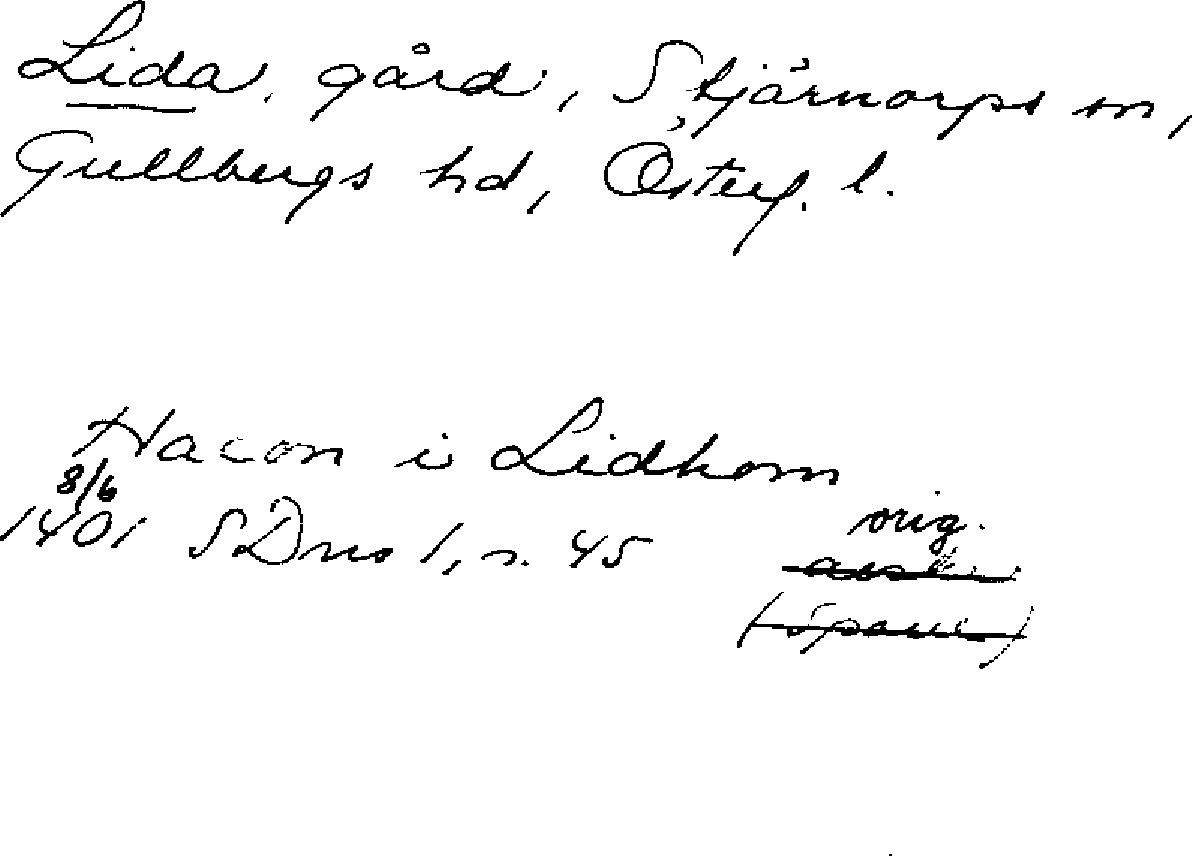 Lida, gård, Stjärnorps sn,
Gullbergs hd, Österg. l.
Hacon i Lidhom
8/6
1401 SDns 1, s. 45
orig.